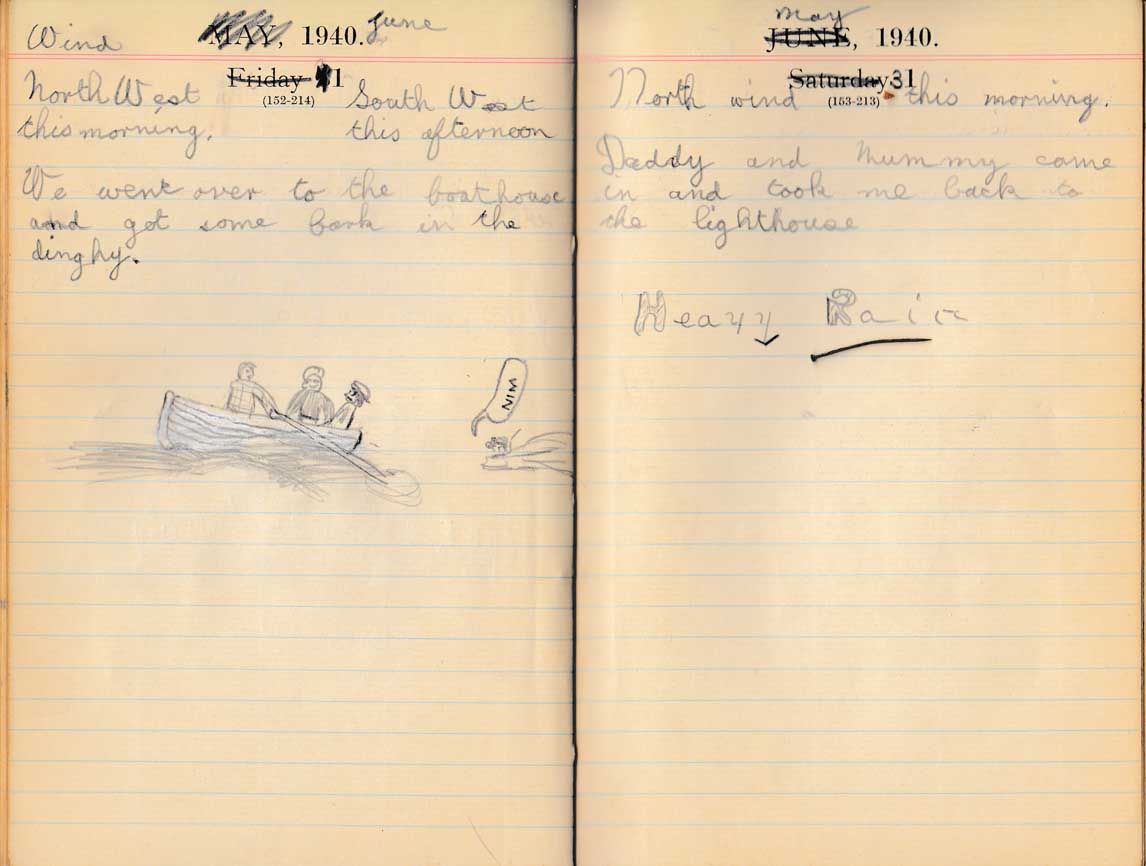 Wind MAY, 1940. June
Friday 1
(152-214)
North West South West
this morning. this afternoon
We went over to the boathouse
and got some bark in the
dinghy.
NIM
May
JUNE, 1940.
Saturday 31
(153-213)
North wind this morning.
Daddy and Mummy came
in and took me back to
the lighthouse
Heavy Rain